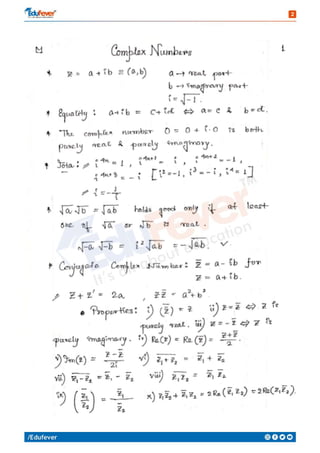 Edufever
2
M Complex Numbers 1
* z = a + ib ≡ (a,b) a → real part
b → imaginary part
i = √-1.
* Equality : a+ib = c+id ⇔ a=c & b=d.
* The complex number 0 = 0 + i·0 is both
purely real & purely imaginary.
* Iota : i^4n = 1 , i^4n+1 = i , i^4n+2 = -1 ,
i^4n+3 = -i [i²=-1, i³=-i, i⁴=1]
i = -1/i
* √a √b = √ab holds good only if at least
one of √a or √b is real.
√-a √-b = i²√ab = -√ab. ✓
* Conjugate Complex Number : z̄ = a-ib for
z = a+ib.
z + z̄ = 2a , z z̄ = a²+b²
• Properties : i) (z̄) = z ii) z = z̄ ⇔ z is
purely real. iii) z = -z̄ ⇔ z is
purely imaginary. iv) Re(z) = Re(z̄) = (z+z̄)/2
v) Im(z) = (z-z̄)/2i vi) z₁+z₂ = z̄₁ + z̄₂
vii) z₁-z₂ = z̄₁ - z̄₂ viii) z₁z₂ = z̄₁ z̄₂
ix) (z₁/z₂) = z̄₁/z̄₂ x) z₁z̄₂ + z̄₁z₂ = 2Re(z̄₁z₂) = 2Re(z₁z̄₂).
Edufever
It's all about Education
TM
/Edufever